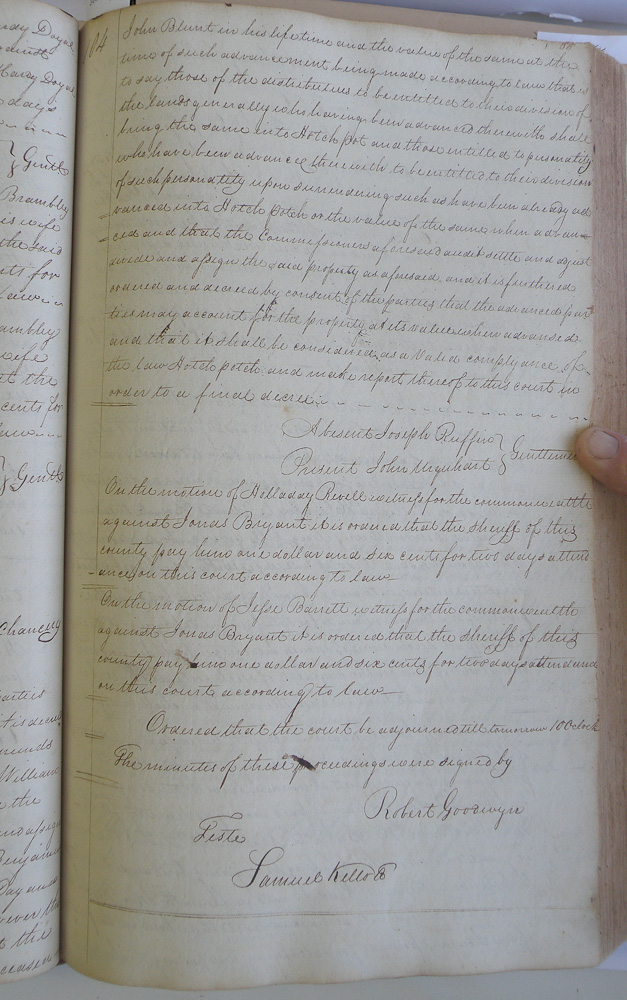 ardy Doyal
Hardy Doyal
days
} Gentl
Brambley
his wife
the said
cents for
law
ambley
wife
at the
cents for
law
} Gentl
Chancery
parties
William
the
Benjamin
Day and
over the
the
ceased
104
John Blunt in his lifetime and the value of the same at the
time of such advancement being made according to law that is
to say those of the distributees to be entitled to their division of
the lands generally who having been advanced therewith shall
bring the same into Hotch pot and those entitled to personality
who have been advanced therewith to be entitled to their division
of such personality upon surrendering such as have been already ad
vanced into Hotch potch or the value of the same when advan-
ced and that the Commissioners aforesaid audit settle and adjust
divide and assign the said property as aforesaid and it is further
ordered and decreed by consent of the parties that the advanced par
ties may account for the property at its value when advanced
and that it shall be considered as a Valid complyance of
the law Hotch potch and make report thereof to this court in
order to a final decree
Absent Joseph Ruffin } Gentlemen
Present John Urquhart
On the motion of Holladay Revell witness for the commonwealth
against Jonas Bryant it is ordered that the sheriff of this
county pay him one dollar and six cents for two days attend
ance on this court according to law
On the motion of Jesse Barrett witness for the commonwealth
against Jonas Bryant it is ordered that the sheriff of this
county pay him one dollar and six cents for two days attendance
on this court according to law
Ordered that the court be adjourned till tomorrow 10 Oclock
The minutes of these proceedings were signed by
Robert Goodwyn
Teste
Samuel Kello